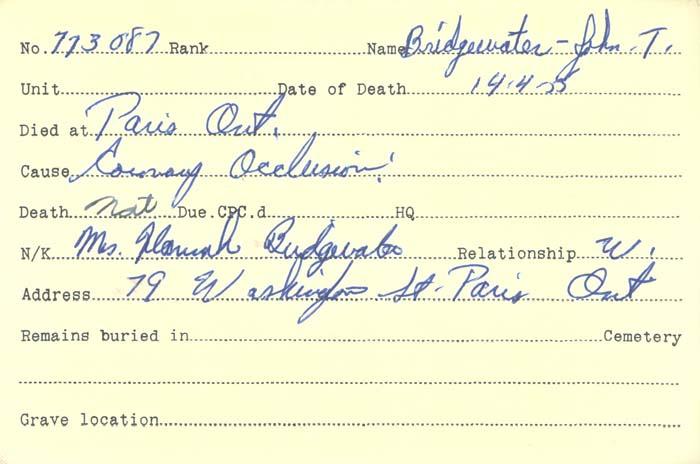 No. 773087 Rank Name Bridgewater - John. T.
Unit Date of Death 14-4-55
Died at Paris Ont.
Cause Coronary Occlusion.
Death Not Due CPC.d HQ
N/K Mrs. Hannah Bridgewater Relationship W.
Address 79 Washington St. Paris Ont
Remains buried in Cemetery
Grave location